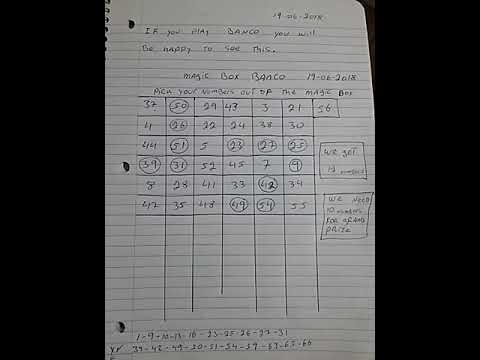 19-06-2018
IF you play BANCO you will
Be happy to see this.
magic Box BANCO 19-06-2018
Pick your numbers out of the magic Box
37 50 29 43 3 21 56
4 26 22 24 38 30
44 51 5 23 27 25
39 31 52 45 7 9
8 28 41 33 42 34
47 35 48 49 54 55
we got
12 numbers
we need
10 numbers
FOR GRAND
PRIZE
1-9-10-13-16-23-25-26-27-31
39-42-49-50-51-54-59-63-65-66